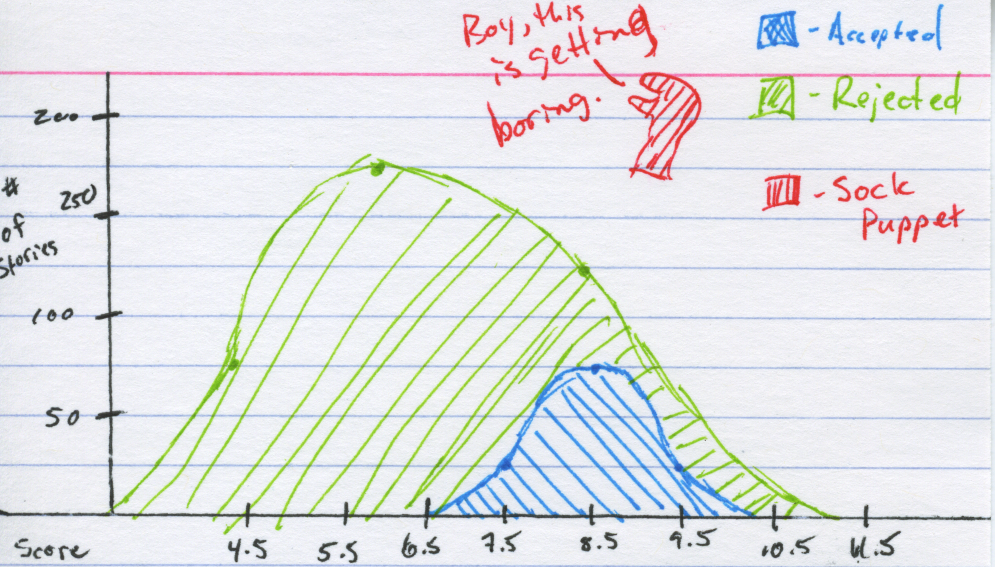 Boy, this
is getting
boring.
- Accepted
- Rejected
- Sock
Puppet
200
250
100
50
#
of
Stories
Score
4.5
5.5
6.5
7.5
8.5
9.5
10.5
11.5